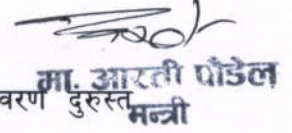 मा. आरती पौडेल
वरण दुरुस्त
मन्त्री